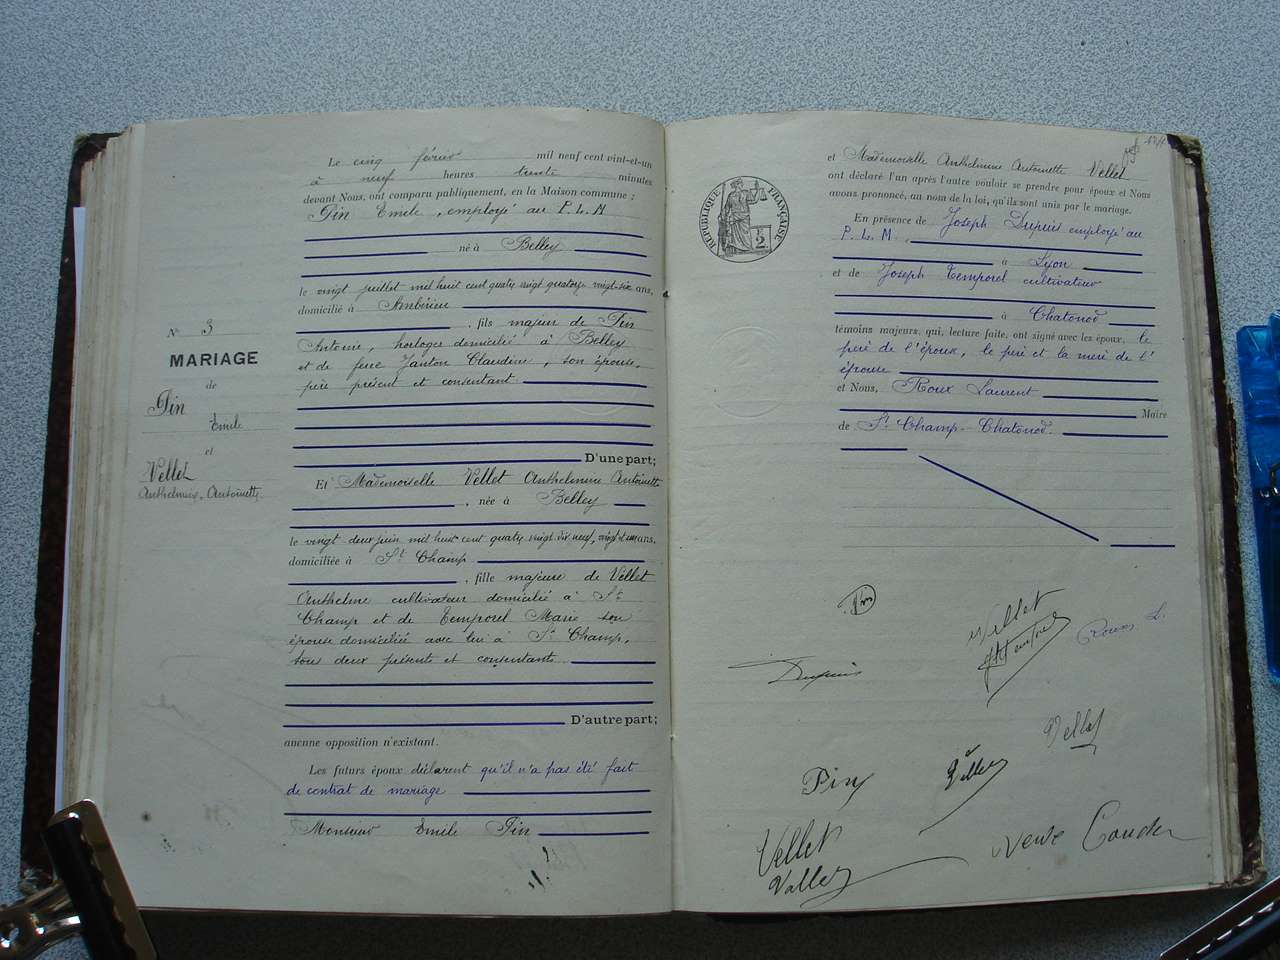 Le cinq février mil neuf cent vint-et-un
à neuf heures trente minutes
devant Nous, ont comparu publiquement, en la Maison commune :
Pin Emile, employé au P. L. M
né à Belley
le vingt juillet mil huit cent quatre vingt quatorze vingt-six ans,
domicilié à Ambérieu
, fils majeur de Pin
Antoine, horloger domicilié à Belley
et de feue Janton Claudine, son épouse,
père présent et consentant
D'une part;
Et Mademoiselle Vellet Anthelmine Antoinette
, née à Belley
le vingt deux juin mil huit cent quatre vingt dix neuf, vingt et un ans,
domiciliée à St Champ
, fille majeure de Vellet
Anthelme cultivateur domicilié à St
Champ et de Temporel Marie son
épouse domiciliée avec lui à St Champ,
tous deux présents et consentants
D'autre part;
aucune opposition n'existant.
Les futurs époux déclarent qu'il n'a pas été fait
de contrat de mariage
Monsieur Emile Pin
N° 3
MARIAGE
de
Pin
Emile
et
Vellet
Anthelmine, Antoinette
et Mademoiselle Anthelmine Antoinette Vellet
ont déclaré l'un après l'autre vouloir se prendre pour époux et Nous
avons prononcé, au nom de la loi, qu'ils sont unis par le mariage.
En présence de Joseph Dupuis employé au
P. L. M.
à Lyon
et de Joseph Temporel cultivateur
à Chatonod
témoins majeurs, qui, lecture faite, ont signé avec les époux, le
père de l'époux, le père et la mère de l'
épouse
et Nous, Roux Laurent
Maire
de St Champ-Chatonod.
RÉPUBLIQUE FRANÇAISE
2
Pin
Vellet
Roux L.
Dupuis
Vellet
Pin
Vellet
veuve